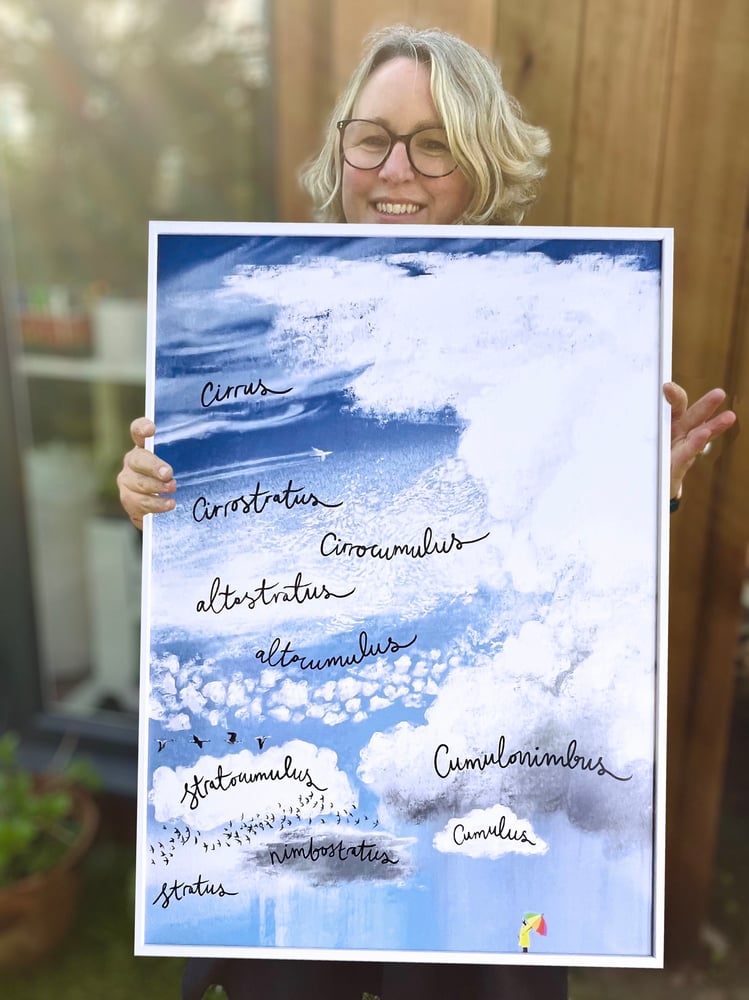 Cirrus
Cirrostratus
Cirrocumulus
altostratus
altocumulus
Cumulonimbus
stratocumulus
Cumulus
nimbostratus
stratus